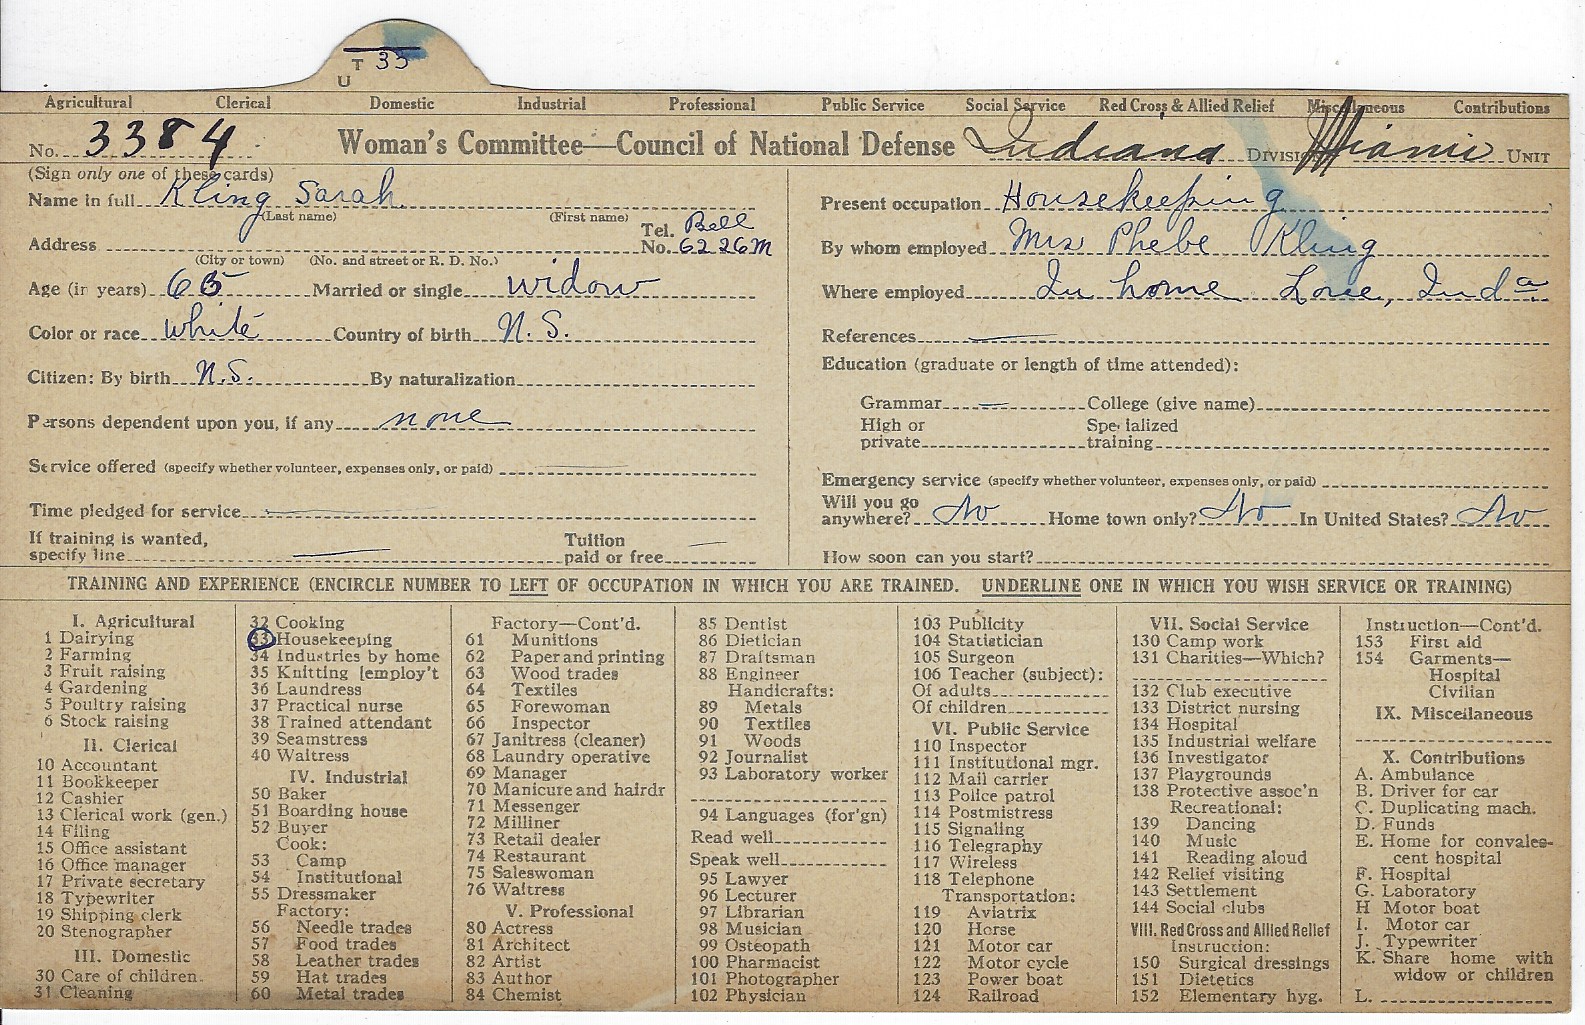 T 33
U
Agricultural Clerical Domestic Industrial Professional Public Service Social Service Red Cross & Allied Relief Miscellaneous Contributions
No. 3384 Woman's Committee—Council of National Defense Indiana Division Miami Unit
(Sign only one of these cards)
Name in full Kling Sarah
(Last name) (First name)
Address Tel. No. Bell 6226M
(City or town) (No. and street or R. D. No.)
Age (in years) 65 Married or single widow
Color or race white Country of birth N.S.
Citizen: By birth N.S. By naturalization
Persons dependent upon you, if any none
Service offered (specify whether volunteer, expenses only, or paid)
Time pledged for service
If training is wanted, specify line Tuition paid or free
Present occupation Housekeeping
By whom employed Mrs Phebe Kling
Where employed In home Loree, Inda
References
Education (graduate or length of time attended):
Grammar College (give name)
High or private Specialized training
Emergency service (specify whether volunteer, expenses only, or paid)
Will you go anywhere? No Home town only? No In United States? No
How soon can you start?
TRAINING AND EXPERIENCE (ENCIRCLE NUMBER TO LEFT OF OCCUPATION IN WHICH YOU ARE TRAINED. UNDERLINE ONE IN WHICH YOU WISH SERVICE OR TRAINING)
I. Agricultural
1 Dairying
2 Farming
3 Fruit raising
4 Gardening
5 Poultry raising
6 Stock raising
II. Clerical
10 Accountant
11 Bookkeeper
12 Cashier
13 Clerical work (gen.)
14 Filing
15 Office assistant
16 Office manager
17 Private secretary
18 Typewriter
19 Shipping clerk
20 Stenographer
III. Domestic
30 Care of children
31 Cleaning
32 Cooking
33 Housekeeping
34 Industries by home
35 Knitting [employ't
36 Laundress
37 Practical nurse
38 Trained attendant
39 Seamstress
40 Waitress
IV. Industrial
50 Baker
51 Boarding house
52 Buyer
Cook:
53 Camp
54 Institutional
55 Dressmaker
Factory:
56 Needle trades
57 Food trades
58 Leather trades
59 Hat trades
60 Metal trades
Factory—Cont'd.
61 Munitions
62 Paper and printing
63 Wood trades
64 Textiles
65 Forewoman
66 Inspector
67 Janitress (cleaner)
68 Laundry operative
69 Manager
70 Manicure and hairdr
71 Messenger
72 Milliner
73 Retail dealer
74 Restaurant
75 Saleswoman
76 Waitress
V. Professional
80 Actress
81 Architect
82 Artist
83 Author
84 Chemist
85 Dentist
86 Dietician
87 Draftsman
88 Engineer
Handicrafts:
89 Metals
90 Textiles
91 Woods
92 Journalist
93 Laboratory worker
94 Languages (for'gn)
Read well
Speak well
95 Lawyer
96 Lecturer
97 Librarian
98 Musician
99 Osteopath
100 Pharmacist
101 Photographer
102 Physician
103 Publicity
104 Statistician
105 Surgeon
106 Teacher (subject):
Of adults
Of children
VI. Public Service
110 Inspector
111 Institutional mgr.
112 Mail carrier
113 Police patrol
114 Postmistress
115 Signaling
116 Telegraphy
117 Wireless
118 Telephone
Transportation:
119 Aviatrix
120 Horse
121 Motor car
122 Motor cycle
123 Power boat
124 Railroad
VII. Social Service
130 Camp work
131 Charities—Which?
132 Club executive
133 District nursing
134 Hospital
135 Industrial welfare
136 Investigator
137 Playgrounds
138 Protective assoc'n
Recreational:
139 Dancing
140 Music
141 Reading aloud
142 Relief visiting
143 Settlement
144 Social clubs
VIII. Red Cross and Allied Relief
Instruction:
150 Surgical dressings
151 Dietetics
152 Elementary hyg.
Instruction—Cont'd.
153 First aid
154 Garments—
Hospital
Civilian
IX. Miscellaneous
X. Contributions
A. Ambulance
B. Driver for car
C. Duplicating mach.
D. Funds
E. Home for convales-
cent hospital
F. Hospital
G. Laboratory
H Motor boat
I. Motor car
J. Typewriter
K. Share home with
widow or children
L.